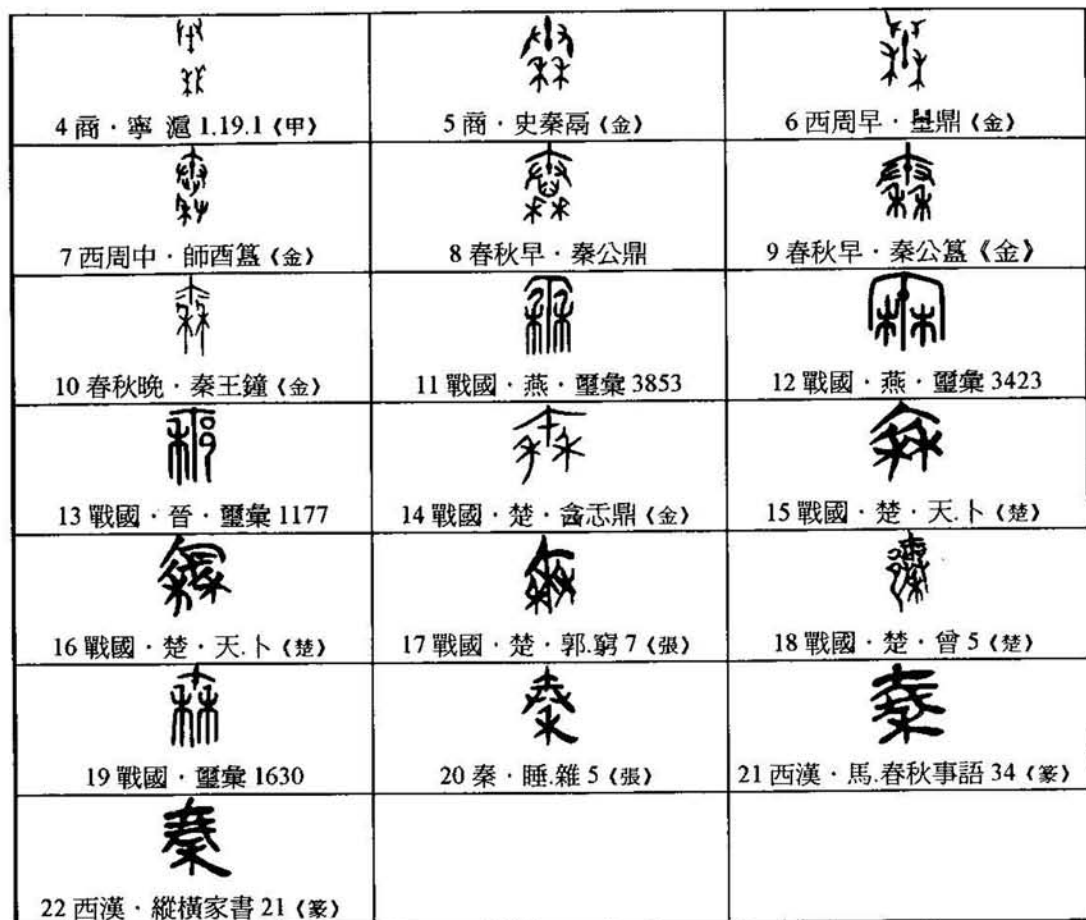 4 商．寧 滬 1.19.1《甲》
5 商．史秦鬲《金》
6 西周早．𡔲鼎《金》
7 西周中．師酉簋《金》
8 春秋早．秦公鼎
9 春秋早．秦公簋《金》
10 春秋晚．秦王鐘《金》
11 戰國．燕．璽彙 3853
12 戰國．燕．璽彙 3423
13 戰國．晉．璽彙 1177
14 戰國．楚．酓忎鼎《金》
15 戰國．楚．天.卜《楚》
16 戰國．楚．天.卜《楚》
17 戰國．楚．郭.窮 7《張》
18 戰國．楚．曾 5《楚》
19 戰國．璽彙 1630
20 秦．睡.雜 5《張》
21 西漢．馬.春秋事語 34《篆》
22 西漢．縱橫家書 21《篆》